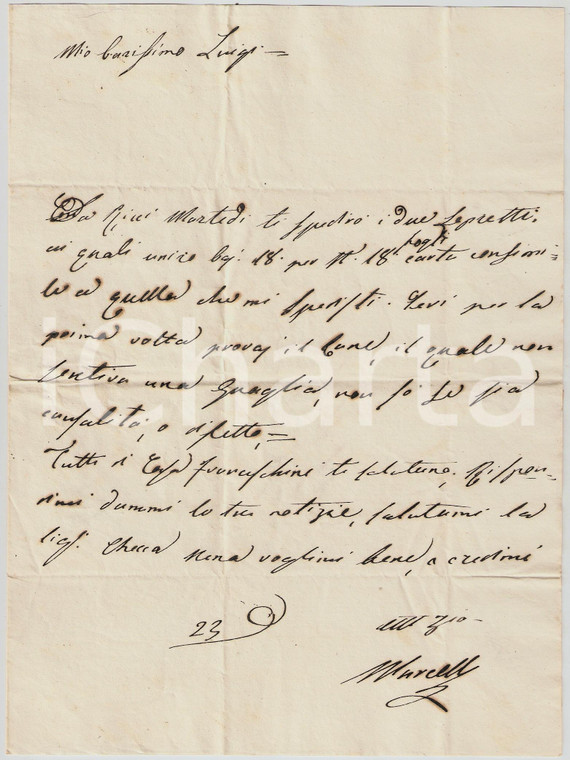 Mio Carissimo Luigi =
Da Ricci Martedi ti spedirò i due Lepretti,
ai quali unirò baj. 18. per N. 18. fogli carta consimi=
le a quella che mi spedisti. Ieri per la
prima volta provaj il Cane, il quale non
sentiva una Quaglia, non sò se sia
causalità, o difetto, =
Tutti di Casa Franceschini ti salutano. Rispon=
dimi dammi le tue notizie, salutami la
Sig. Checca Nena voglimi bene, e credimi
23
Zio
Marcello
iCharta